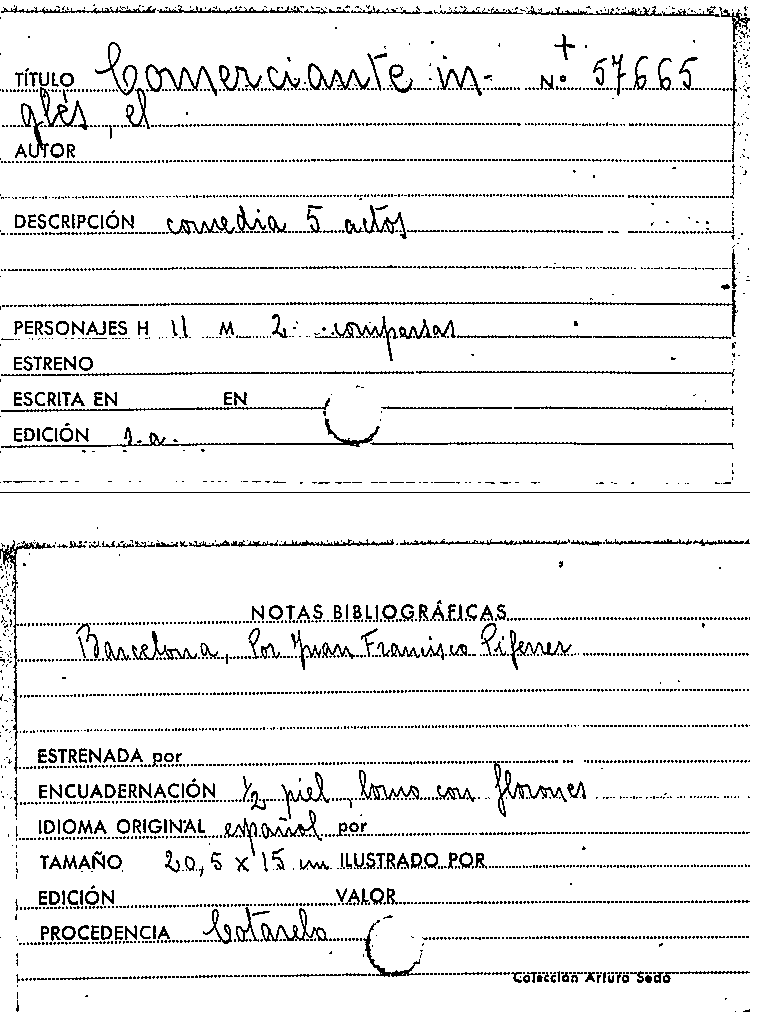 TÍTULO Comerciante in- N.º 57665
glés, el
AUTOR
DESCRIPCIÓN comedia 5 actos
PERSONAJES H 11 M 2 comparsas
ESTRENO
ESCRITA EN EN
EDICIÓN s.a.
NOTAS BIBLIOGRÁFICAS
Barcelona, Por Juan Francisco Piferrer
ESTRENADA por
ENCUADERNACIÓN ½ piel, lomo con florones
IDIOMA ORIGINAL español por
TAMAÑO 20,5 x 15 cm ILUSTRADO POR
EDICIÓN VALOR
PROCEDENCIA Cotarelo
Colección Arturo Sedó